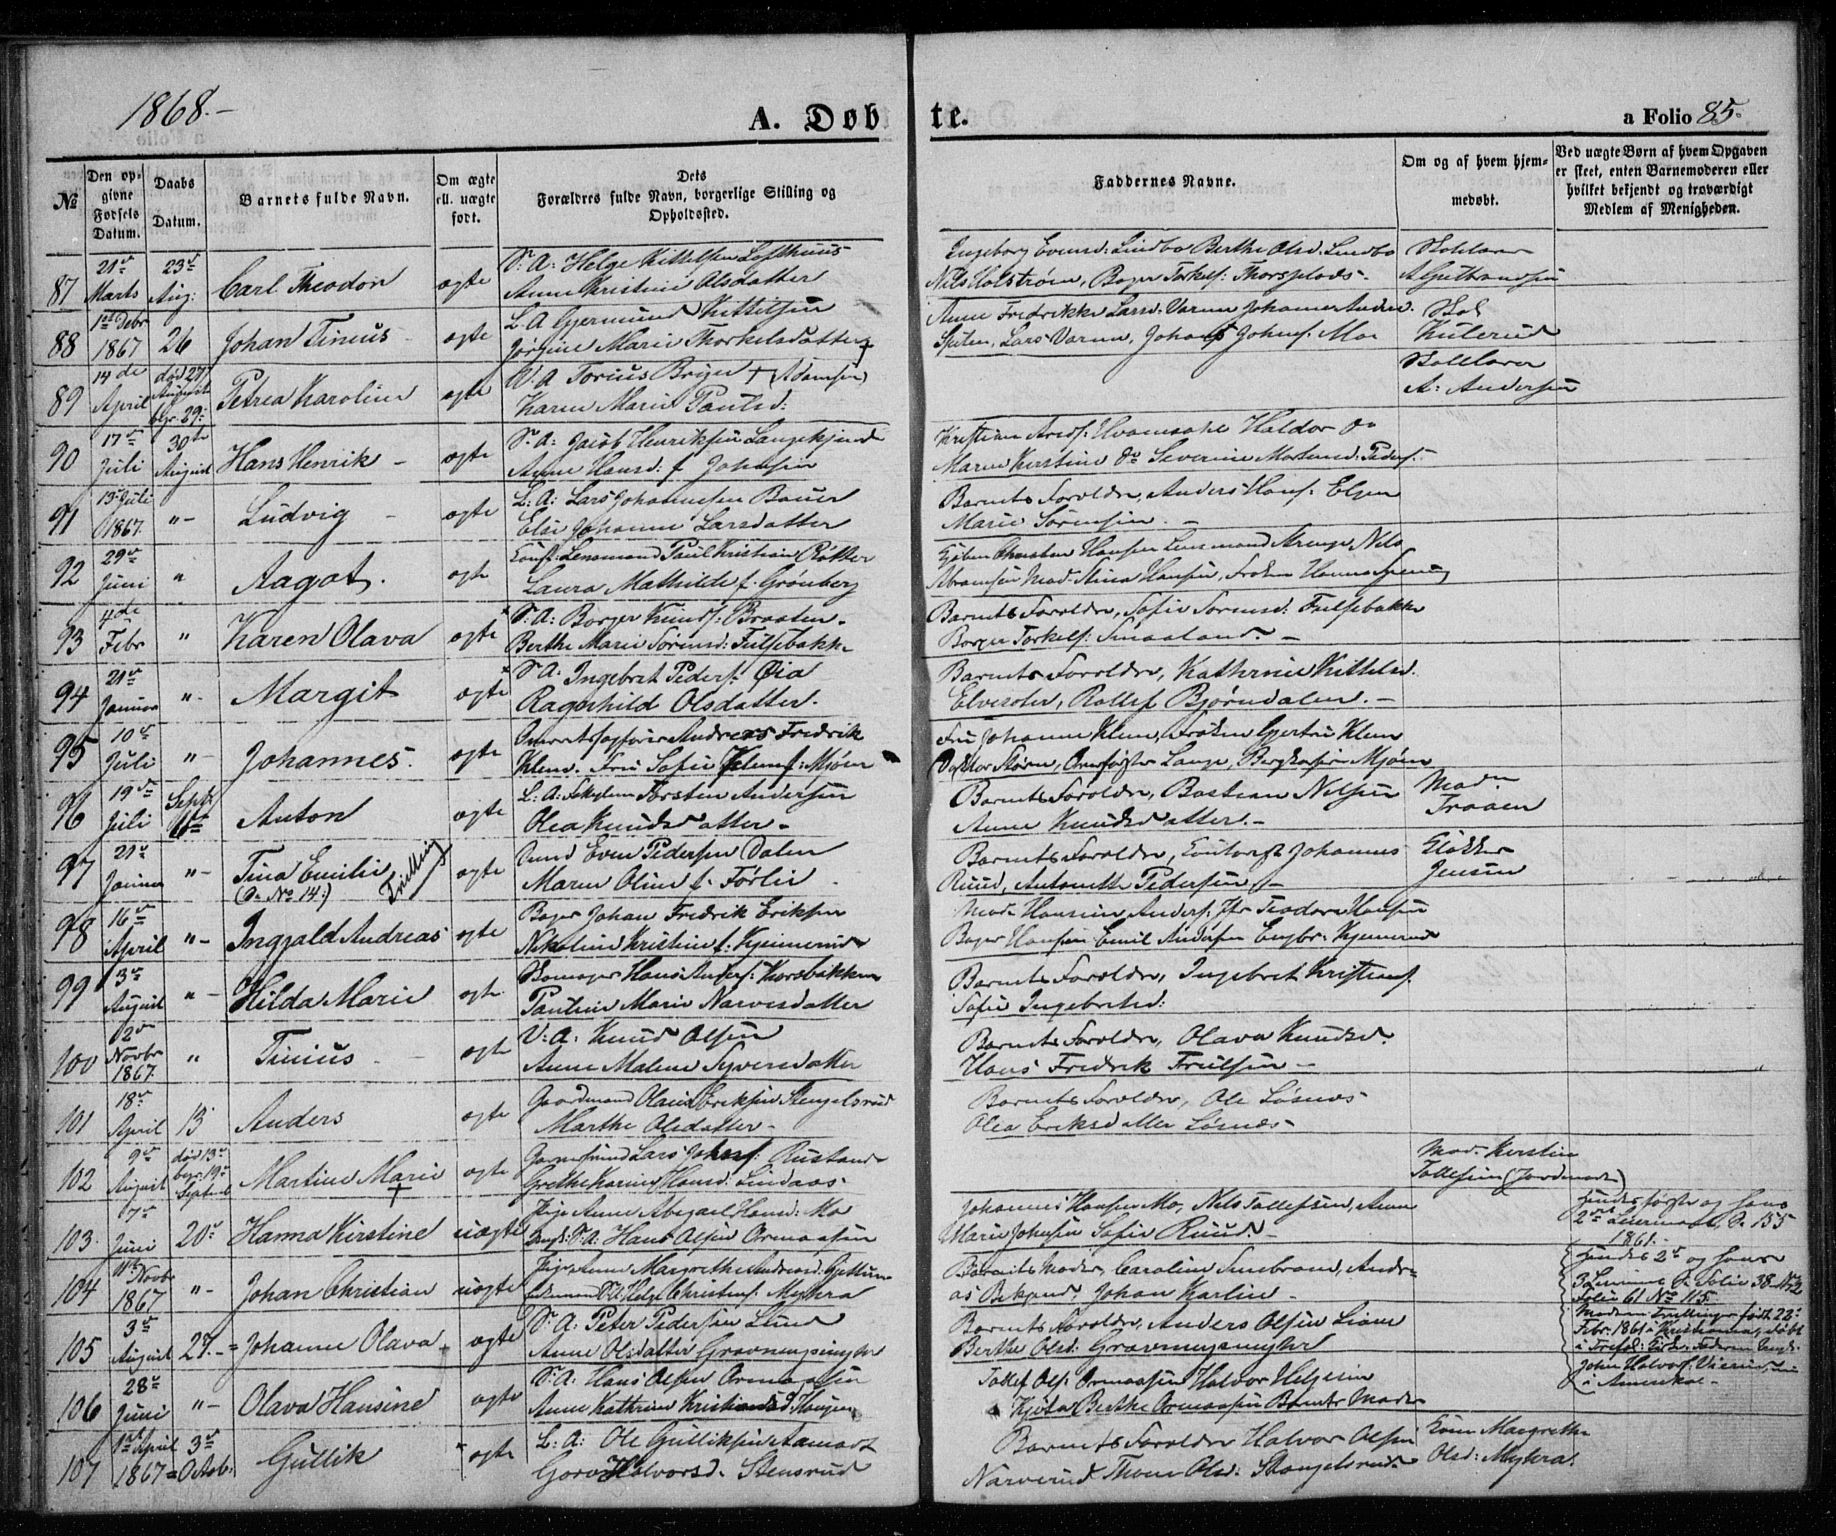 1868.-
A. Døbte.
a Folio 85.
№
Den opgivne Fødsels Datum.
Daabs Datum.
Barnets fulde Navn.
Om ægte ell. uægte født.
Dets Forældres fulde Navn, borgerlige Stilling og Opholdssted.
Faddernes Navne.
Om og af hvem hjemmedøbt.
Ved uægte Børn af hvem Opgaven er skeet, enten Barnemoderen eller hvilket bekjendt og troværdigt Medlem af Menigheden.
87 21de Marts 23de Aug: Carl Theodor ægte S: A: Helge Kittelsen Lofthuus
Anne Kirstine Olsdatter
Ingeborg Evensd: Lindbo Berthe Olsd. Lindbo
Nils Holstrøm, Borger Torkelsf: Thorsplads-
Skolelærer
A Gulbrandsen
88 1ste Debr 1867 26 Johan Tinius ægte L. A Gjermund Kittelsen
Jørgine Marie Thorkelsdatter
Anne Fredrikke Larsd. Varnæ Johannes Anders.
Lars Varnæ, Johans Johnsf. Moe
Skol
Kulerud
89 14de April død 27 August begr. 29: Petrea Karoline ægte V. A Torius Bryn + (Adamsen)
Karen Marie Paulsd:
Skolelærer
A: Andersen
90 17de Juli 30te August Hans Henrik - ægte S: A: Jacob Henriksen Langekjend
Anne Hansd: f Johnsen
Kristian Haldor do
Maren Kirstine do Severine Pedersf:
91 15 Juli 1867. "- Ludvig - ægte L: A: Lars Johannesen Bauer
Else Johanne Larsdatter
Barnets Forældre, Anders Hansf. Elgen
Marie Sørensen. -
92 29de Juni " Aagot. ægte Const: Lensmand Paul Kristian Røtter
Laura Mathilde f. Grønberg
Kjøbm Christen Hansen Lensmand Strenge Nils
Abramsen Mad. Stina Hansen, Frøken Hanna
93 4de Febr " Karen Olava ægte S: A: Borger Knudsf: Braaten.
Berthe Marie Sørensd: Fulsebakke
Barnets Forældre, Sofie Sørensd. Fulsebakke
Borger Torkelsf: Smaaland. -
94 21de Januar "- Margit ægte S. A: Ingebret Pedersf: Øia
Ragnhild Olsdatter.
Barnets Forældre, Kathrine Kittelsd.
Rollef Bjørndalen. -
95 10de Juli "- Johannes. ægte Overretssagfører Andreas Fredrik
Klem. Fru Sofie Klem f: Mjøen
Fru Johanne Klem, Frøken Gjertru Klem
Doktor Størm, Lange, Bergkasser Mjøen
96 19de Juli Septbr 6te Anton ægte L: A: Torsten Andersen
Olea Knudsdatter -
Barnets Forældre, Bastian Nilsen
Anne Knudsdatter. -
Mad.
Traaen
97 21de Januar "- Tina Emilie
(S. No 14.) Trilling
ægte Even Pedersen Dalen
Maren Oline f. Førlie
Barnets Forældre, Johannes
Ruud, Antonette Pedersen, -
Klokker
Jensen
98 16de April "- Ingvald Andreas ægte Bager Johan Fredrik Eriksen
Nikoline Kristine f. Kjennerud
Mad. Hansine Andersf: Teodora Hansen
Bager Hansen Emil Andersen Engbr. Kjennerud
99 3de August "- Hilda Marie ægte Skomager Hans Andersf: Korsbakken
Pauline Marie Narvesdatter
Barnets Forældre, Ingebret Kristiansf.
Sofie Ingebretsd:
100 2de Novbr 1867. " Tinius - ægte V: A: Knud Olsen
Anne Malene Syversdatter
Barnets Forældre, Olava Knudsd.
Hans Fredrik -
101 18de April 13 Anders ægte Gaardmand Olaus Eriksen Stengelsrud
Marthe Olsdatter -
Barnets Forældre, Ole Løsnæs-
Olea Eriksdatter Løsnæs-
102 9de August død 13de begr. 19de Septemb Martine Marie + ægte Lars Johnsf: Rustand
Grethe Karine Hansd. Lindaas.
Mad. Kirstin
Tollefsen (Jordmoder)
103. 7de Juni 20de Hanna Kirstine uægte Pige Anne Abigael Hansd: Mo
Ungk: S. A: Hans Olsen Ormaasen
Johannes Hansen Mo, Nils Tollefsen, Anne
Marie Johnsen Sofie Ruud. -
Hendes første og hans
2det Leiermaal, P. 155
1861.
104 11te Novbr 1867 "- Johan Christian uægte Pige Anne Margrethe Andersd:
S. A: Helge Christensf. Myhra
Barnets Moder, Caroline Andreas
Johan Karlin -
Hendes 2det og hans
3 Leierm P. Folio 38 No 2
Folio 61 No 115.
105 3de August 27. -= Johanne Olava ægte S: A: Peter Pedersen Lund
Anne Olsdatter Gravningsmyhr
Barnets Forældre, Anders Olsen Liane
Berthe Olsd: Gravningsmyhr
født 22de
Febr. 1861 i Kristiania, døbt
John Halvorsf.
i Amerika. -
106 28de Juni "- Olava Hansine ægte S: A: Hans Olsen Ormaasen
Anne Kathrine Kristiansd Haugen
Tollef Olsf: Ormaasen Halvor Helgesen
Berthe Ormaasen Barnets Moder
107 1ste April 1867 = 3de Octob. Gullik ægte L: A: Ole Gulliksen Aamodt
Goro Halvorsd. Stensrud
Barnets Forældre Halvor Olsen
Narverud Thore Olsd: Stengelsrud.
Kone Margrethe
Olsd: Myhra.